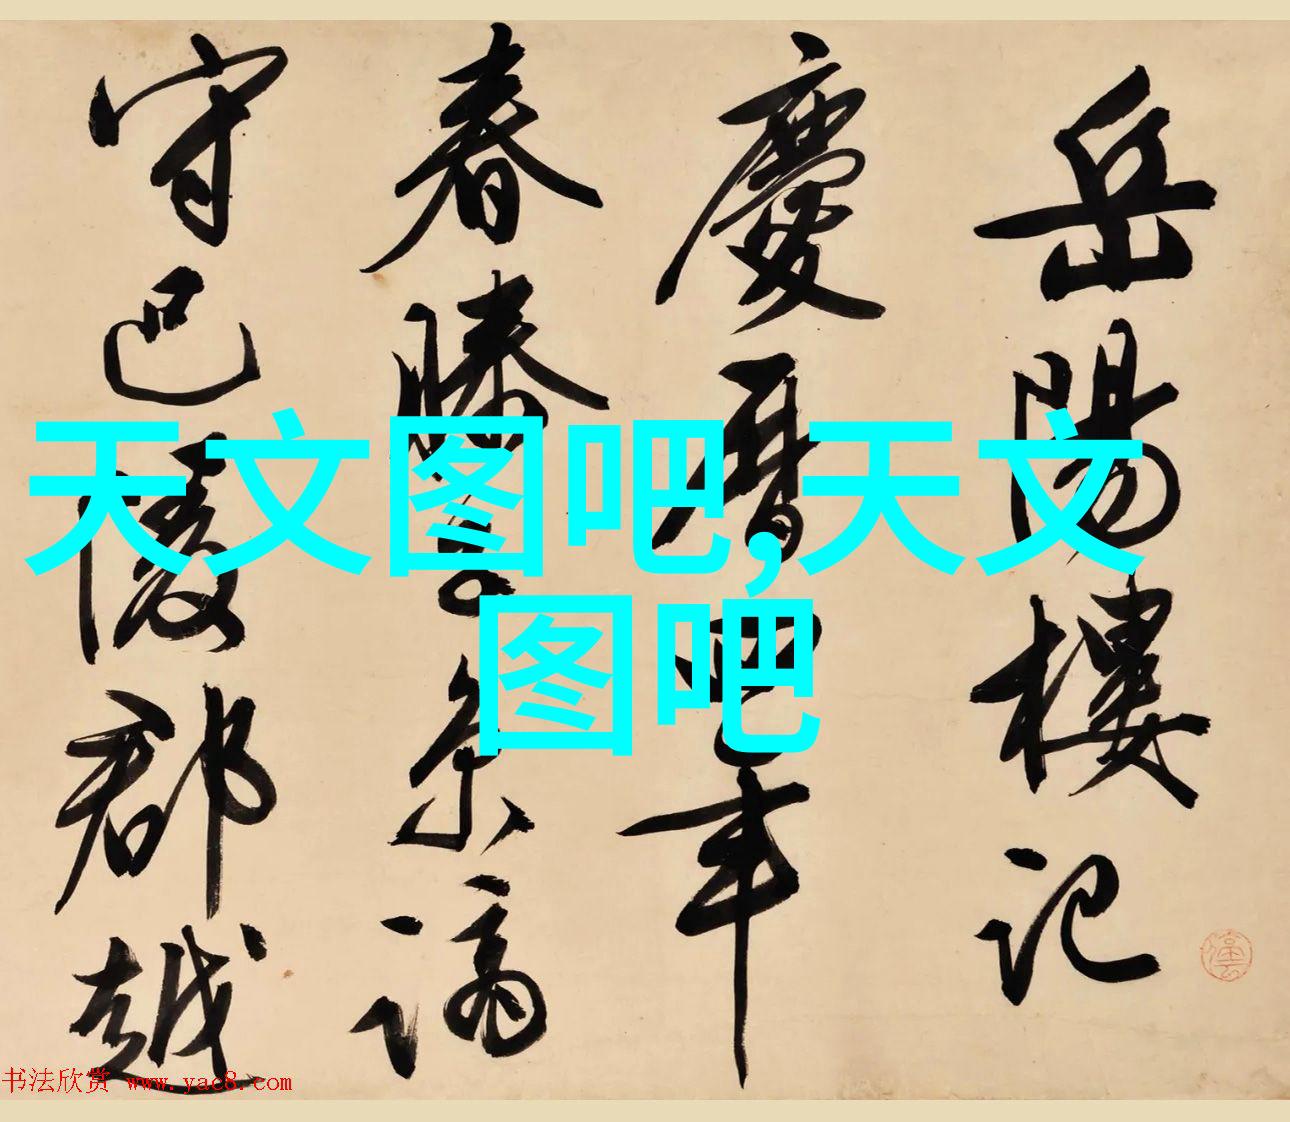 岳陽樓記
慶曆四年
春滕子京謫
守巴陵郡越
天文图吧,天文
图吧
书法欣赏 www.yac8.com